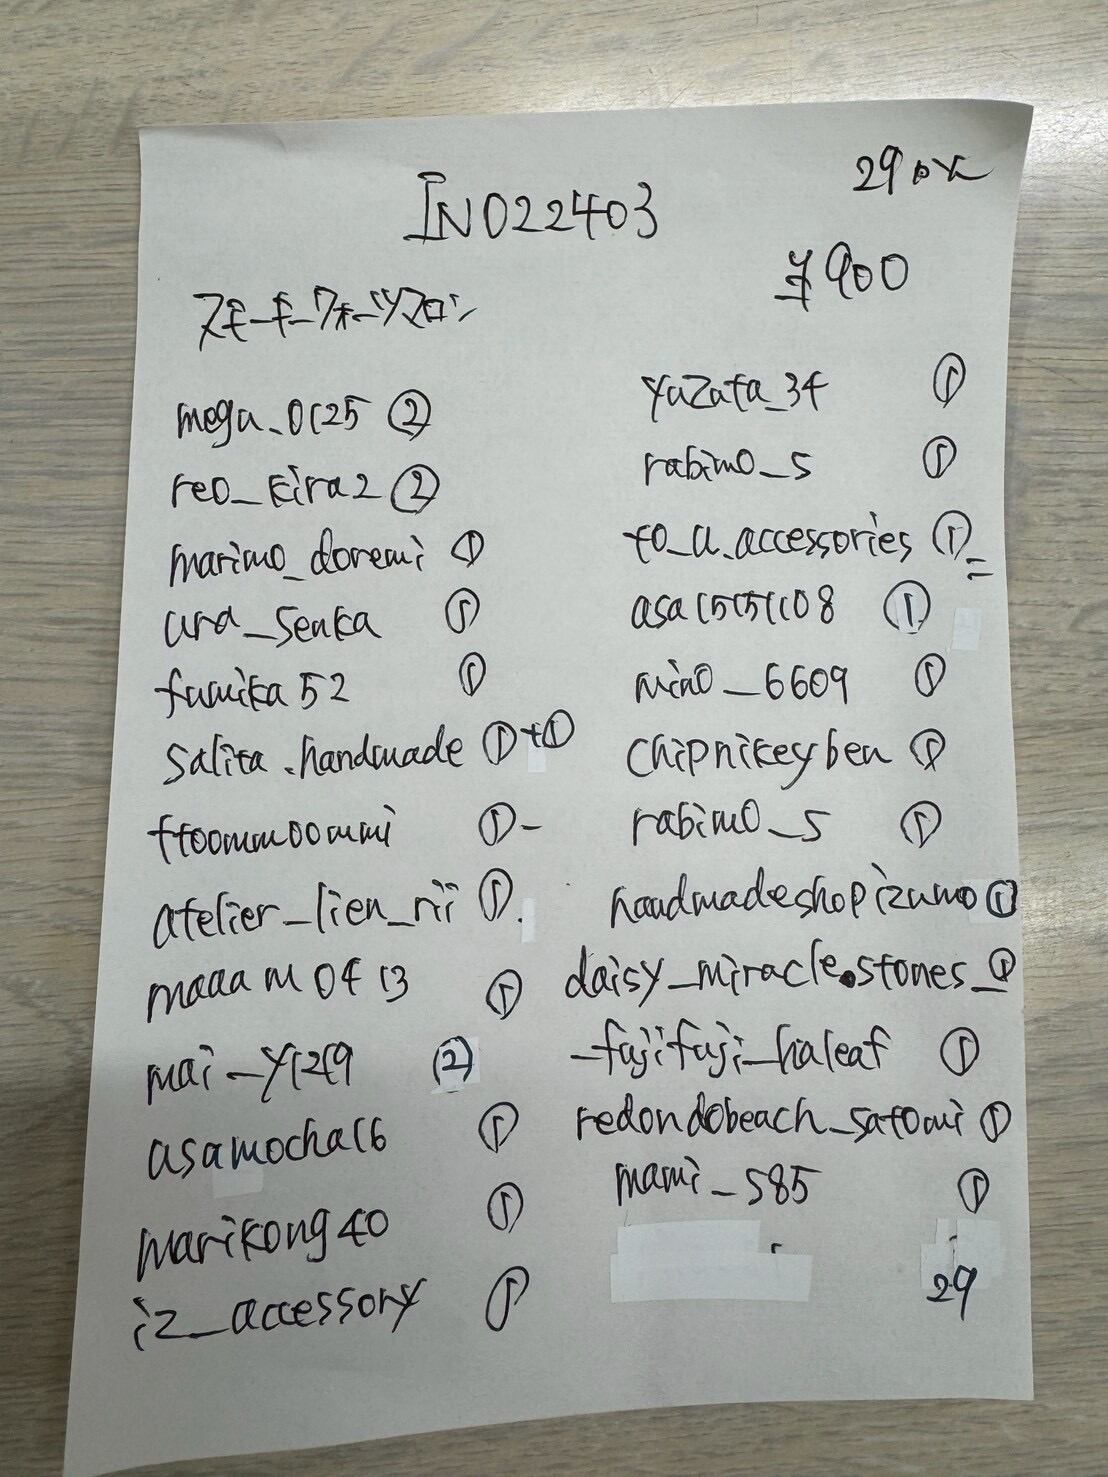 29pス
IN022403
¥900
スモーキークォーツマロン
mega_0125 ②
reo_kira2 ②
marimo_doremi ①
ura_senka ①
fumika52 ①
salita.handmade ①+①
ttoommoommi ①-
atelier_lien_rii ①.
maaam0413 ①
mai_y1219 ②
asamocha16 ①
marikong40 ①
iz_accessory ①
yazata_34 ①
rabimo_s ①
to_a.accessories ①=
asa15151108 ①
nino_6609 ①
chipnikeyben ①
rabimo_s ①
handmadeshopizumo ①
daisy_miracle.stones_ ①
_fujifuji_haleaf ①
redondobeach_satomi ①
mami_s85 ①
29